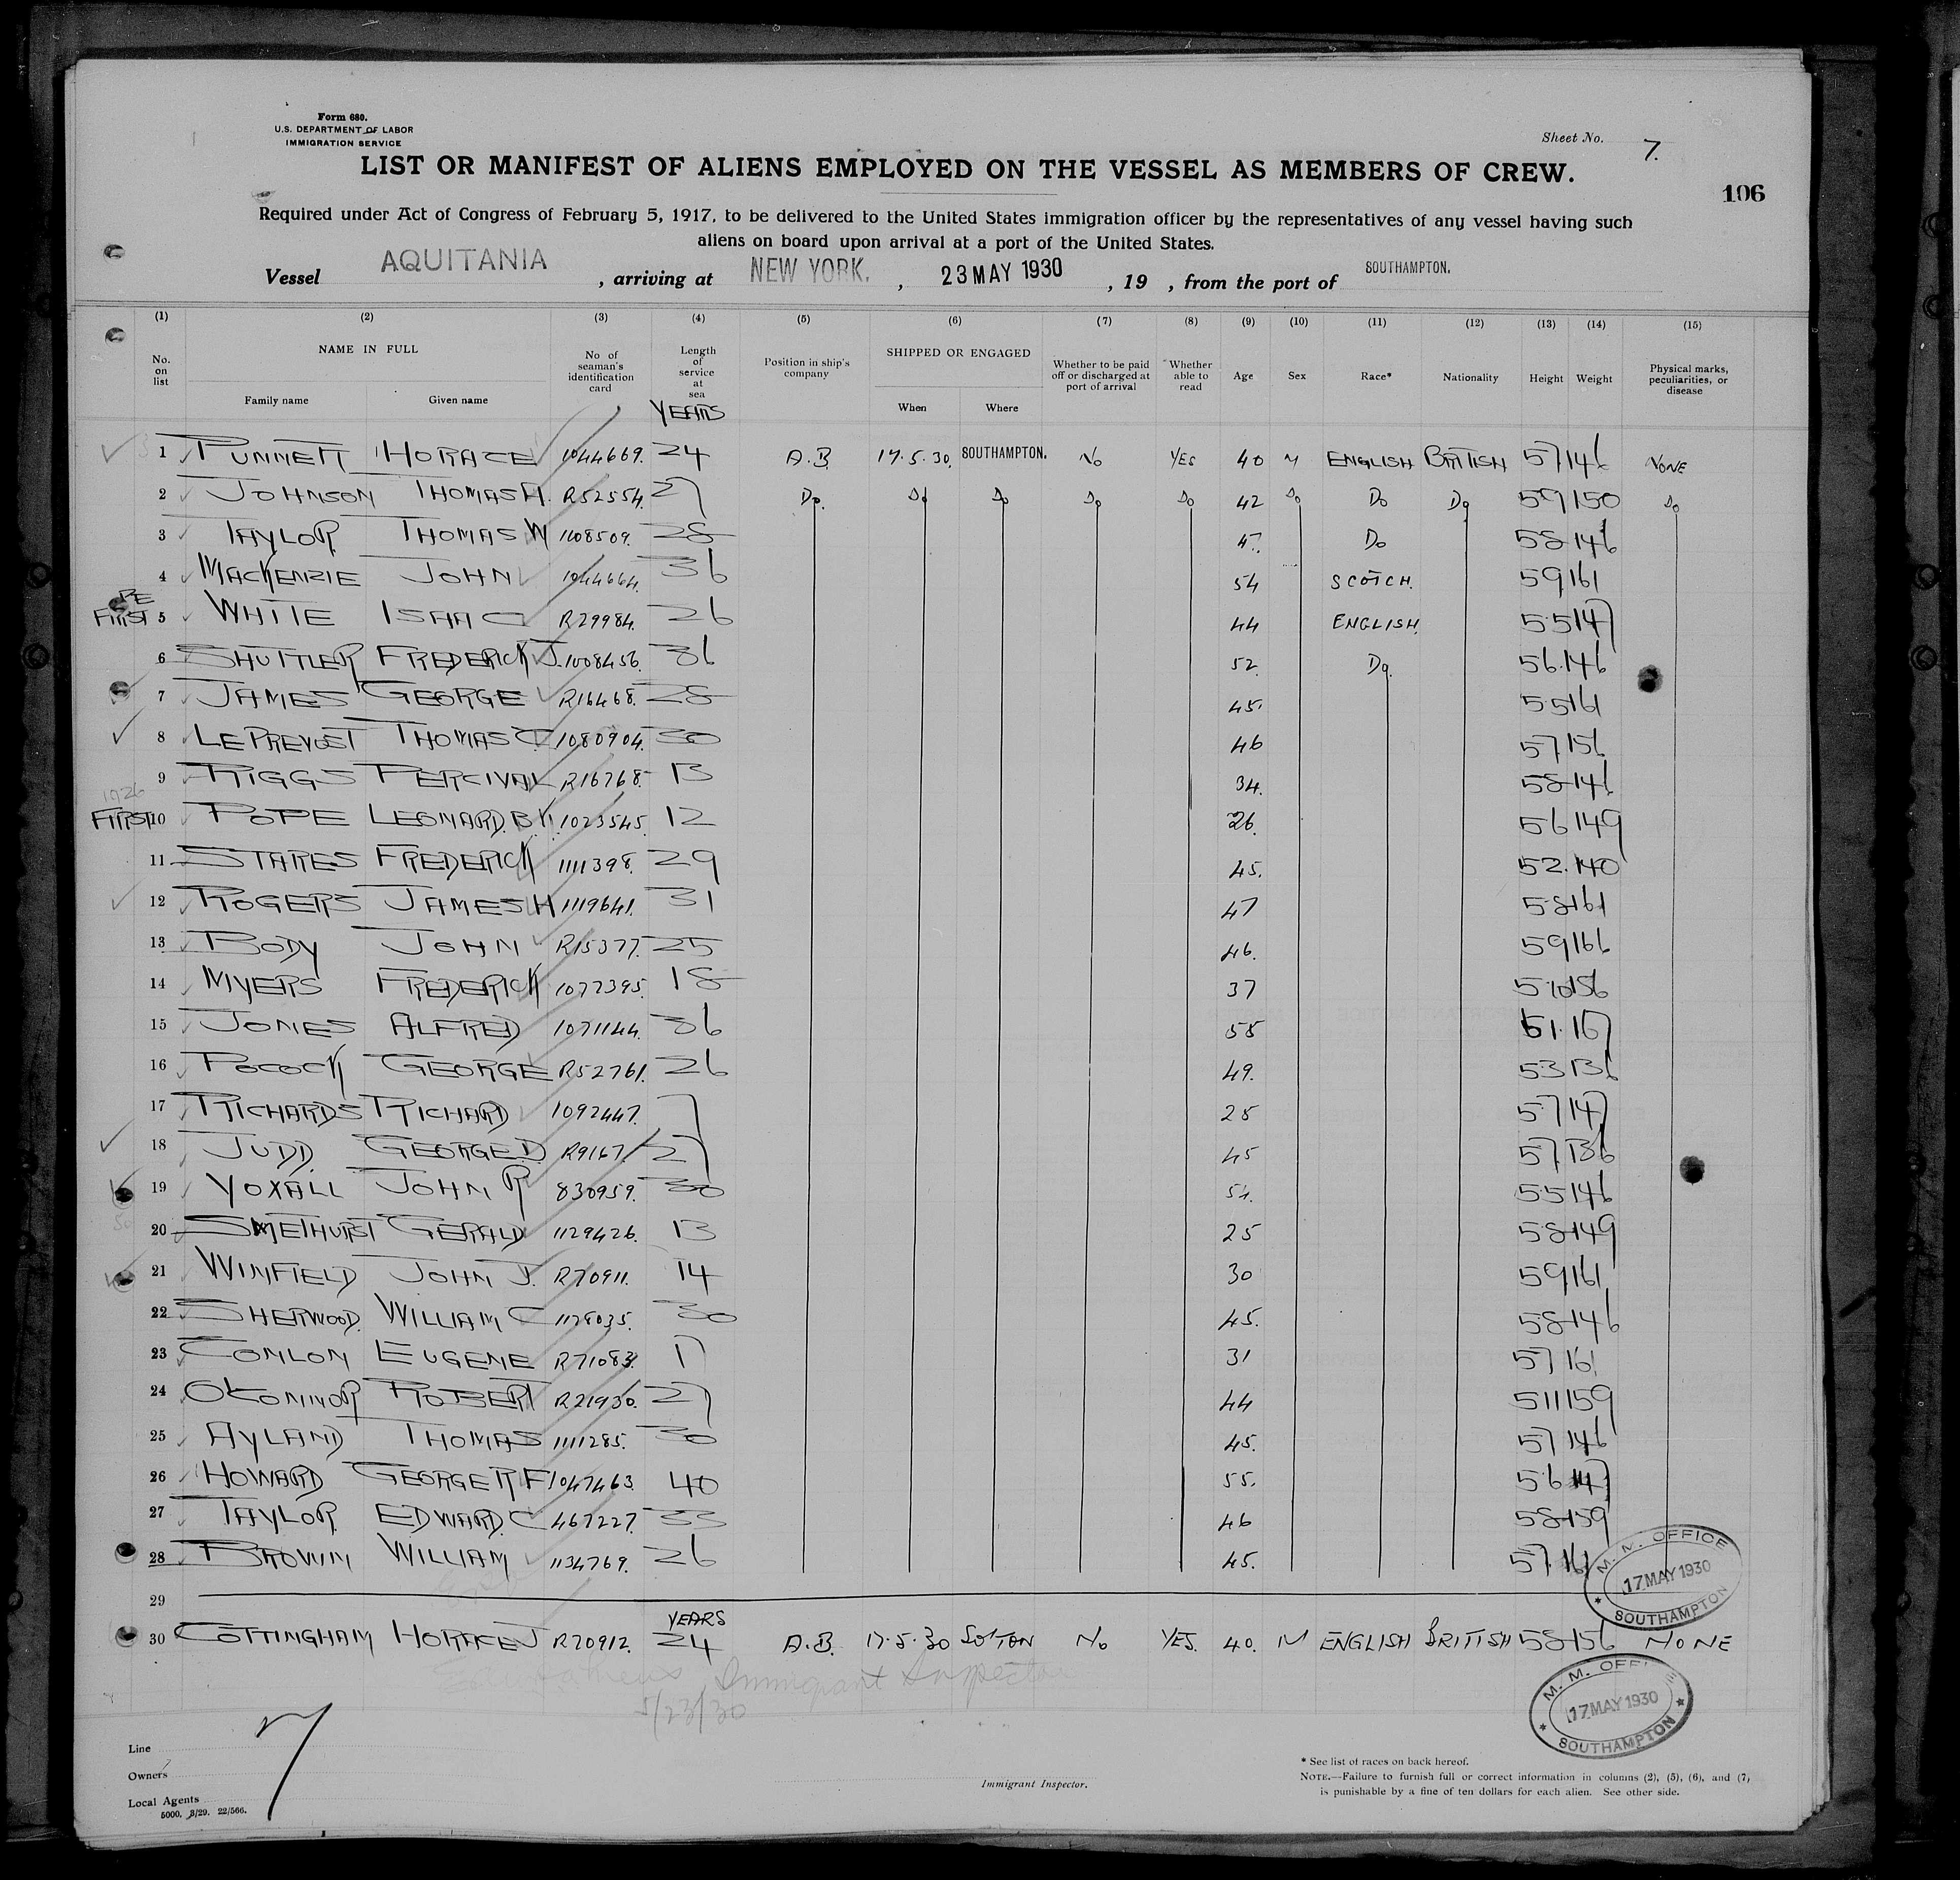 Form 680.
U.S. DEPARTMENT OF LABOR
IMMIGRATION SERVICE
Sheet No. 7.
LIST OR MANIFEST OF ALIENS EMPLOYED ON THE VESSEL AS MEMBERS OF CREW.
106
Required under Act of Congress of February 5, 1917, to be delivered to the United States immigration officer by the representatives of any vessel having such
aliens on board upon arrival at a port of the United States.
Vessel AQUITANIA , arriving at NEW YORK. , 23 MAY 1930 , 19 , from the port of SOUTHAMPTON.
(1) (2) (3) (4) (5) (6) (7) (8) (9) (10) (11) (12) (13) (14) (15)
No. on list NAME IN FULL Family name Given name No of seaman's identification card Length of service at sea Position in ship's company SHIPPED OR ENGAGED When Where Whether to be paid off or discharged at port of arrival Whether able to read Age Sex Race* Nationality Height Weight Physical marks, peculiarities, or disease
YEARS
1 PUNNETT HORACE 1044669. 24 A.B. 17.5.30. SOUTHAMPTON. No YES 40 M ENGLISH BRITISH 57 146 NONE
2 JOHNSON THOMAS H. R52554. 27 Do. Do Do Do Do 42 Do Do Do 59 150 Do
3 TAYLOR THOMAS W 1108509. 28 Do 58 146
4 MACKENZIE JOHN 1044664. 36 54 SCOTCH. 59 161
FIRST 5 WHITE ISAAC R29984. 26 44 ENGLISH. 55 147
6 SHUTTLER FREDERICK J. 1008456. 36 52. Do. 56. 146
7 JAMES GEORGE R16468. 28 45. 55 161
8 LE PREVOST THOMAS C 1080904. 30 46 57 156
9 RIGGS PERCIVAL R16768. 13 34. 58 146
FIRST 10 POPE LEONARD. B 1023545. 12 26. 56 149
11 STARES FREDERICK 1111398. 29 45. 52. 140
12 ROGERS JAMES H 1119641. 31 47 58 161
13 BODY JOHN R15377. 25 46. 59 166
14 MYERS FREDERICK 1077395. 18 37 510 156
15 JONES ALFRED 1071144. 36 55 61. 167
16 POCOCK GEORGE R52761. 26 49. 53 136
17 RICHARDS RICHARD 1092447. 7 25 57 147
18 JUDD. GEORGE D. R9167. 27 45 57 136
19 YOXALL JOHN R 830959. 30 54. 55 146
20 SMETHURST GERALD 1129426. 13 25 58 149
21 WINFIELD JOHN J. R70911. 14 30 59 161
22 SHERWOOD. WILLIAM C 1128035. 30 45. 58 146
23 CONLON EUGENE R71083. 17 31 57 161
24 O'CONNOR ROBERT R21930. 27 44 511 159
25 AYLAND THOMAS 1111285. 30 45. 57 146
26 HOWARD GEORGE R F 1047463. 40 55. 56 147
27 TAYLOR EDWARD. C 467227. 33 46 58 159
28 BROWN WILLIAM 1134769. 26 45. 57. 161
29
M. M. OFFICE
17 MAY 1930
SOUTHAMPTON
YEARS
30 COTTINGHAM HORACE J R70912. 24 A.B. 17.5.30 SO'TON No YES. 40. M ENGLISH BRITISH 58 156 NONE
Immigrant Inspector
5/23/30
M. M. OFFI
17 MAY 1930
SOUTHAMPTON
7
Line
Owners
Local Agents
5000. 3/29. 22/566.
Immigrant Inspector.
* See list of races on back hereof.
NOTE.—Failure to furnish full or correct information in columns (2), (5), (6), and (7,
is punishable by a fine of ten dollars for each alien. See other side.